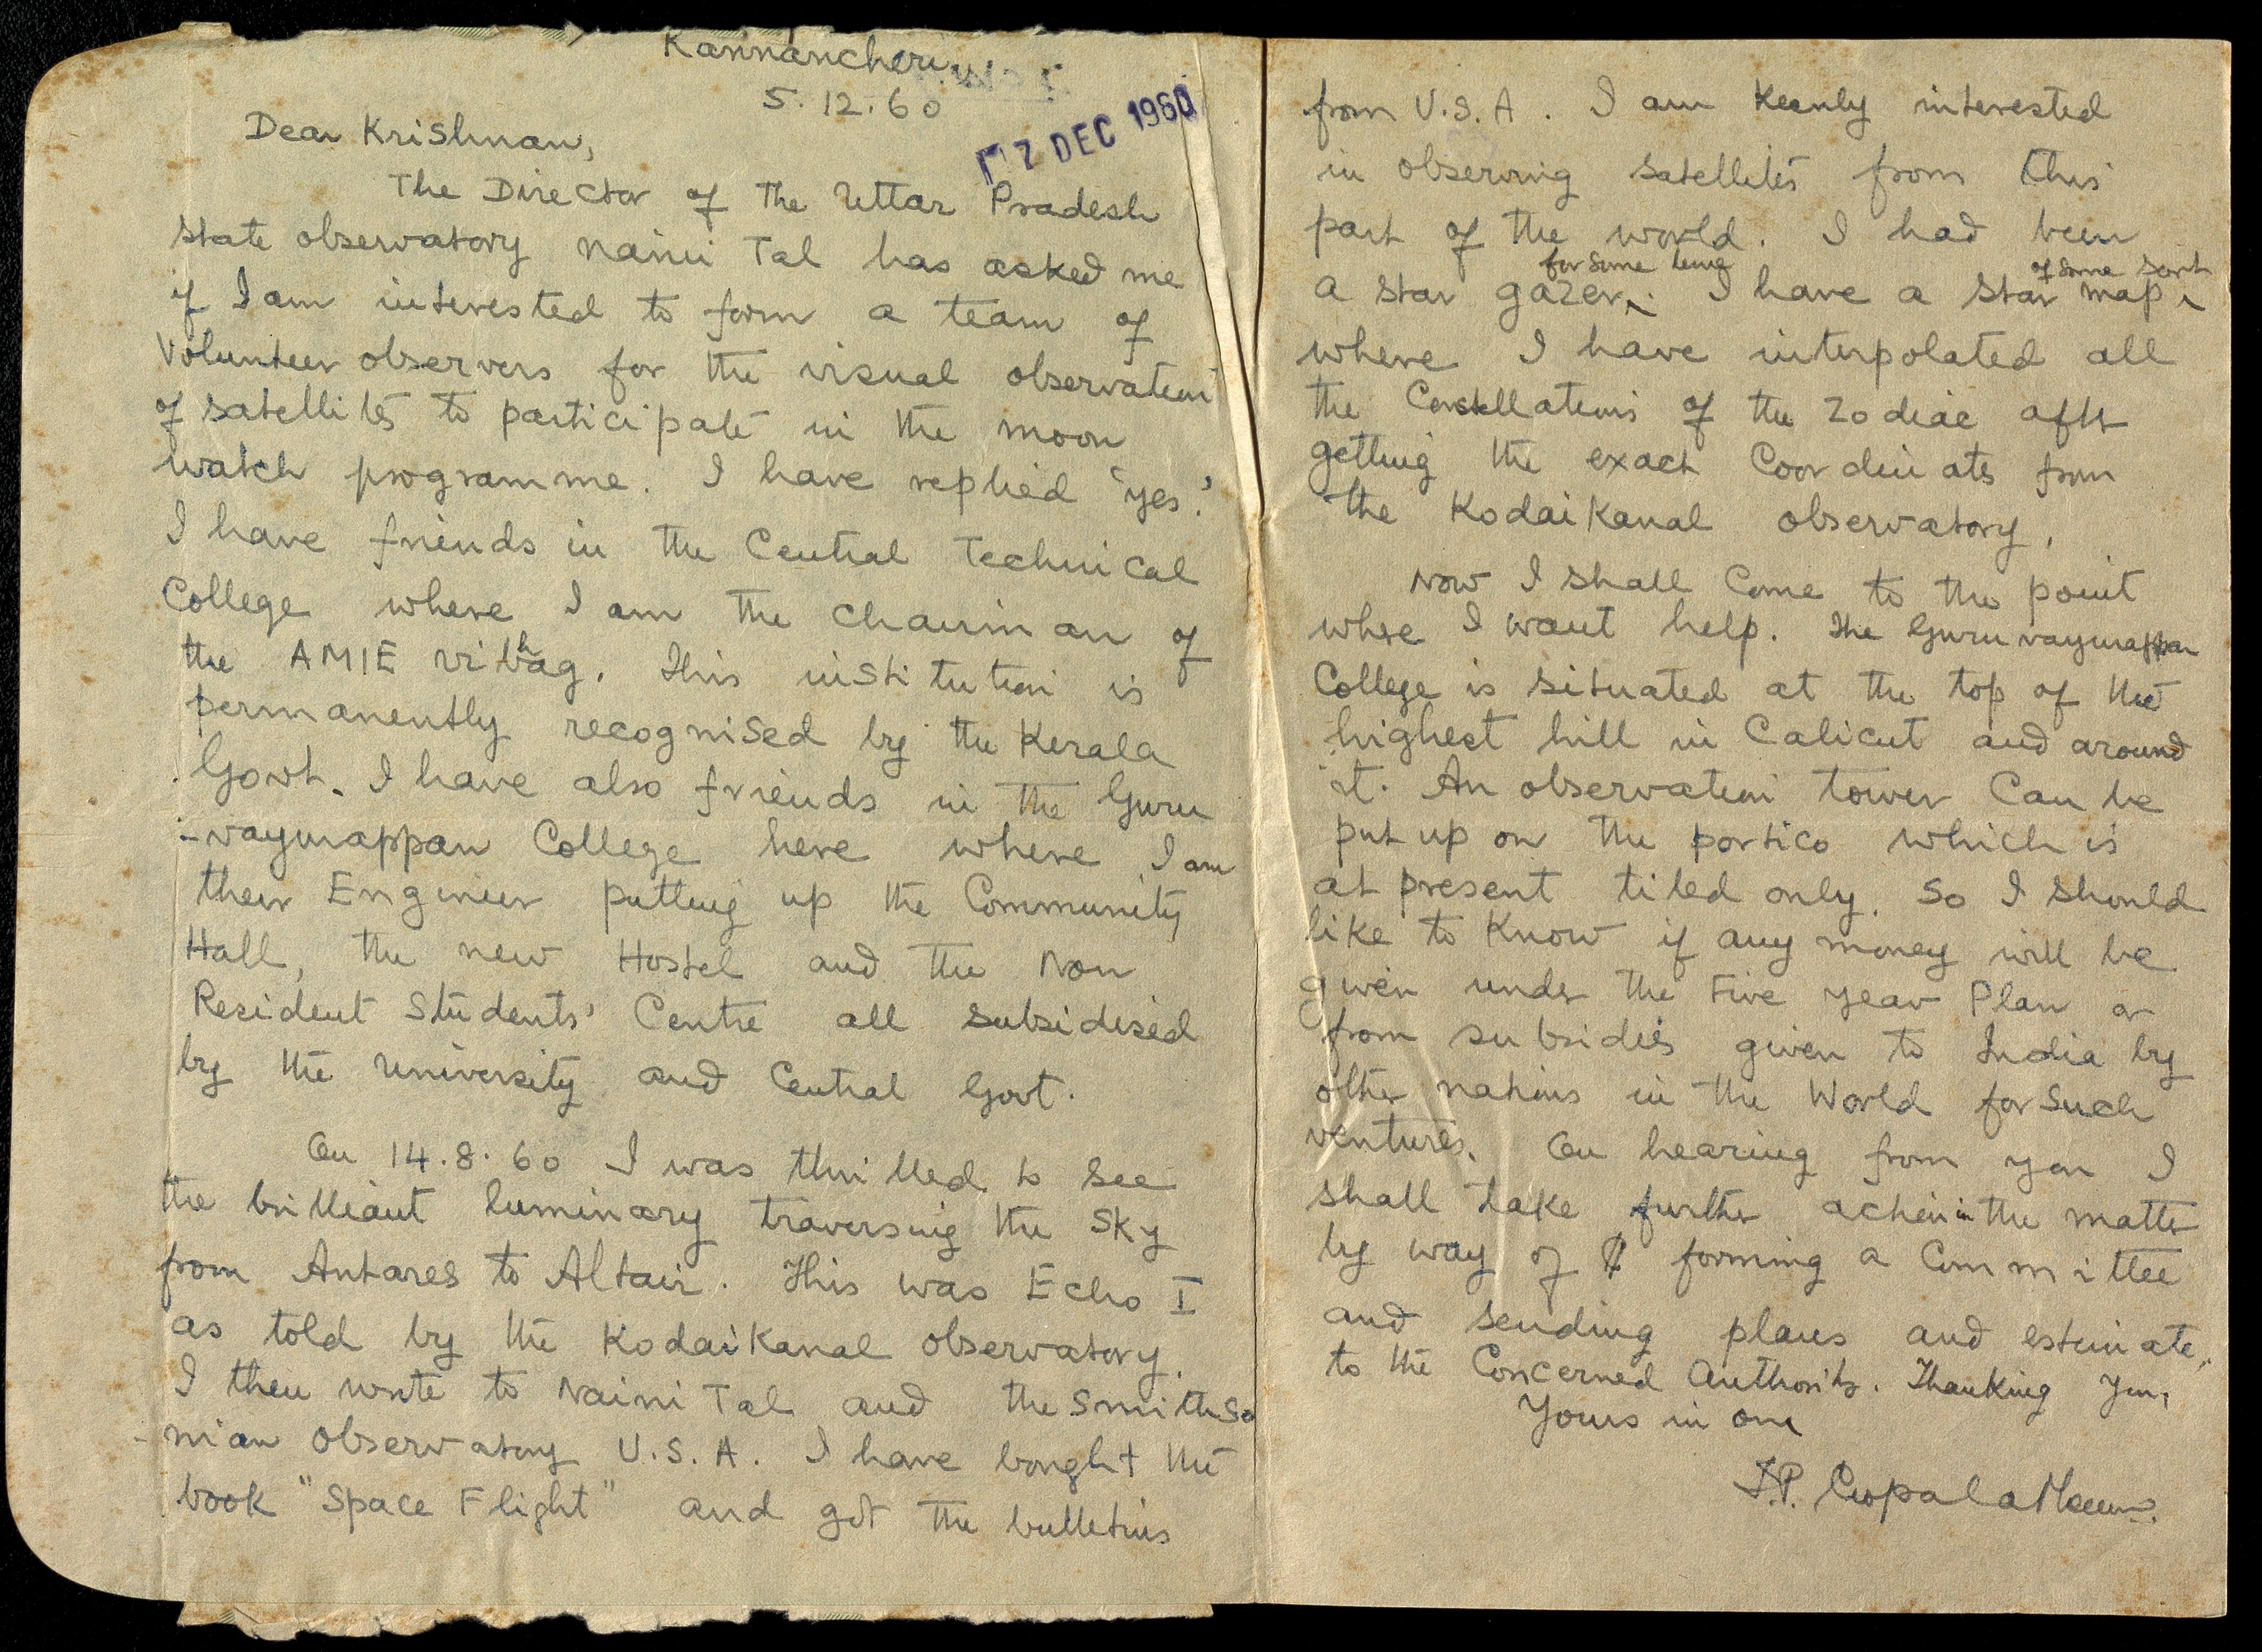 Kannancheri
5.12.60
7 DEC 1960
Dear Krishnan,
The Director of the Uttar Pradesh
state observatory Naini Tal has asked me
if I am interested to form a team of
Volunteer observers for the visual observation
of satellites to participate in the moon
watch programme. I have replied 'yes.'
I have friends in the Central Technical
College where I am the Chairman of
the AMIE vibhag. This institution is
permanently recognised by the Kerala
Govt. I have also friends in the Guru
-vayurappan College here where I am
their Engineer putting up the Community
Hall, the new Hostel and the Non
Resident Students' Centre all subsidised
by the University and Central Govt.
On 14.8.60 I was thrilled to see
the brilliant luminary traversing the sky
from Antares to Altair. This was Echo I
as told by the Kodaikanal observatory.
I then wrote to Naini Tal and the Smithso
-nian observatory U.S.A. I have bought the
book "Space Flight" and got the bulletins
from U.S.A. I am keenly interested
in observing satellites from this
part of the world. I had been
a star gazer for some time. I have a star map of some sort
where I have interpolated all
the Constellations of the Zodiac after
getting the exact Coordinates from
the Kodaikanal observatory.
Now I shall Come to the point
where I want help. The Guruvayurappan
College is situated at the top of the
highest hill in Calicut and around
it. An observation tower Can be
put up on the portico which is
at present tiled only. So I should
like to Know if any money will be
given under the Five year Plan or
from subsidies given to India by
other nations in the World for such
ventures. On hearing from you I
shall take further action in the matter
by way of forming a Committee
and sending plans and estimate
to the Concerned Authority. Thanking you,
Yours in one